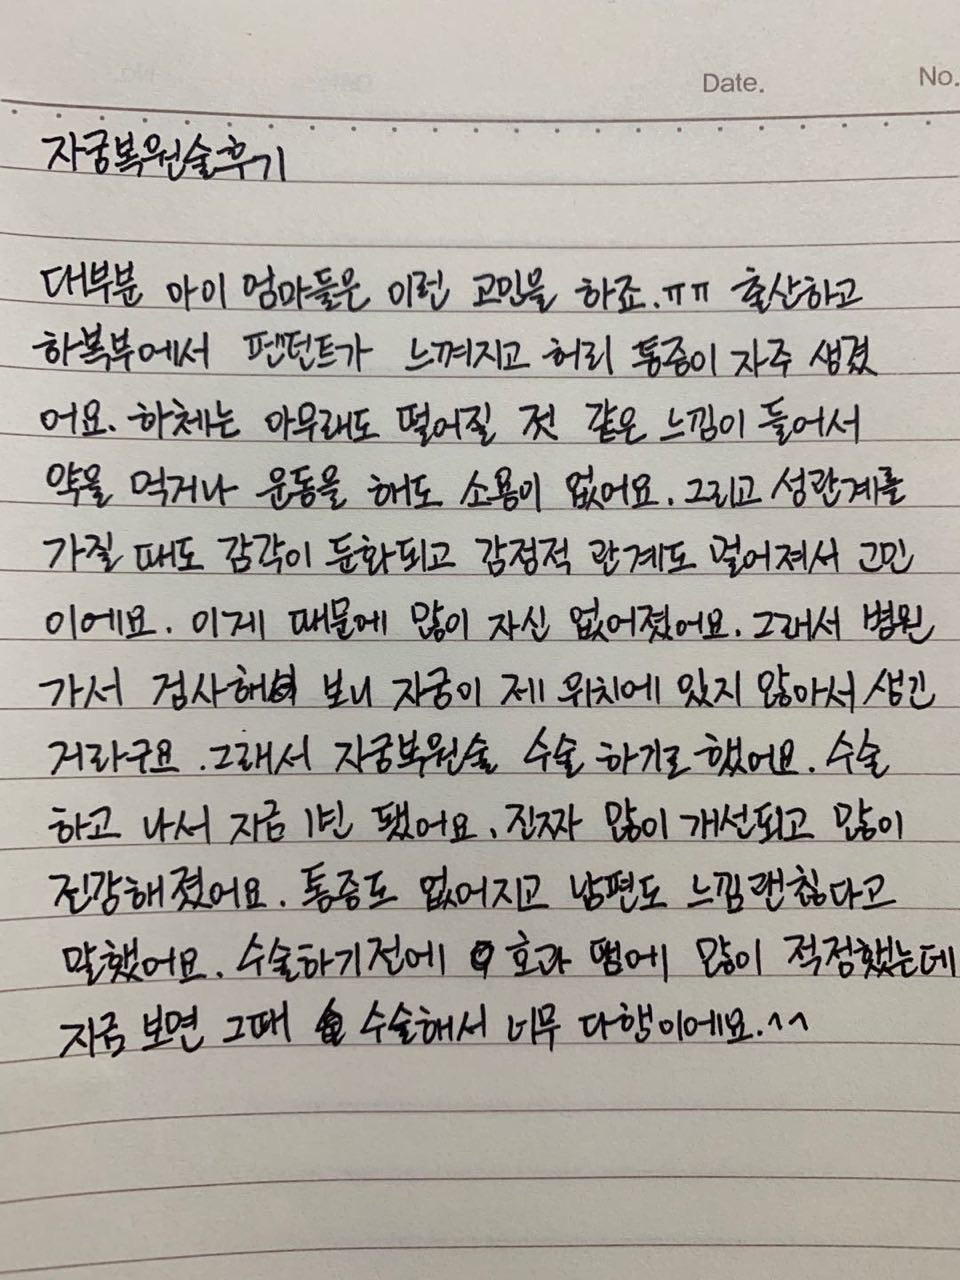 Date.
No.
자궁복원술후기
대부분 아이 엄마들은 이런 고민을 하죠.ㅠㅠ 출산하고
하복부에서 펜던트가 느껴지고 허리 통증이 자주 생겼
어요. 하체는 아무래도 떨어질 젓 같은 느낌이 들어서
약을 먹거나 운동을 해도 소용이 없어요. 그리고 성관계를
가질 때도 감각이 둔화되고 감정적 관계도 멀어져서 고민
이에요. 이게 때문에 많이 자신 없어졌어요. 그래서 병원
가서 검사해 보니 자궁이 제 위치에 있지 않아서 생긴
거라구요. 그래서 자궁복원술 수술 하기로 했어요. 수술
하고 나서 지금 1년 됐어요. 진짜 많이 개선되고 많이
진강해졌어요. 통증도 없어지고 남편도 느낌괜찮다고
말했어요. 수술하기전에 효과 땜에 많이 적정했는데
지금 보면 그때 수술해서 너무 다행이에요.^^